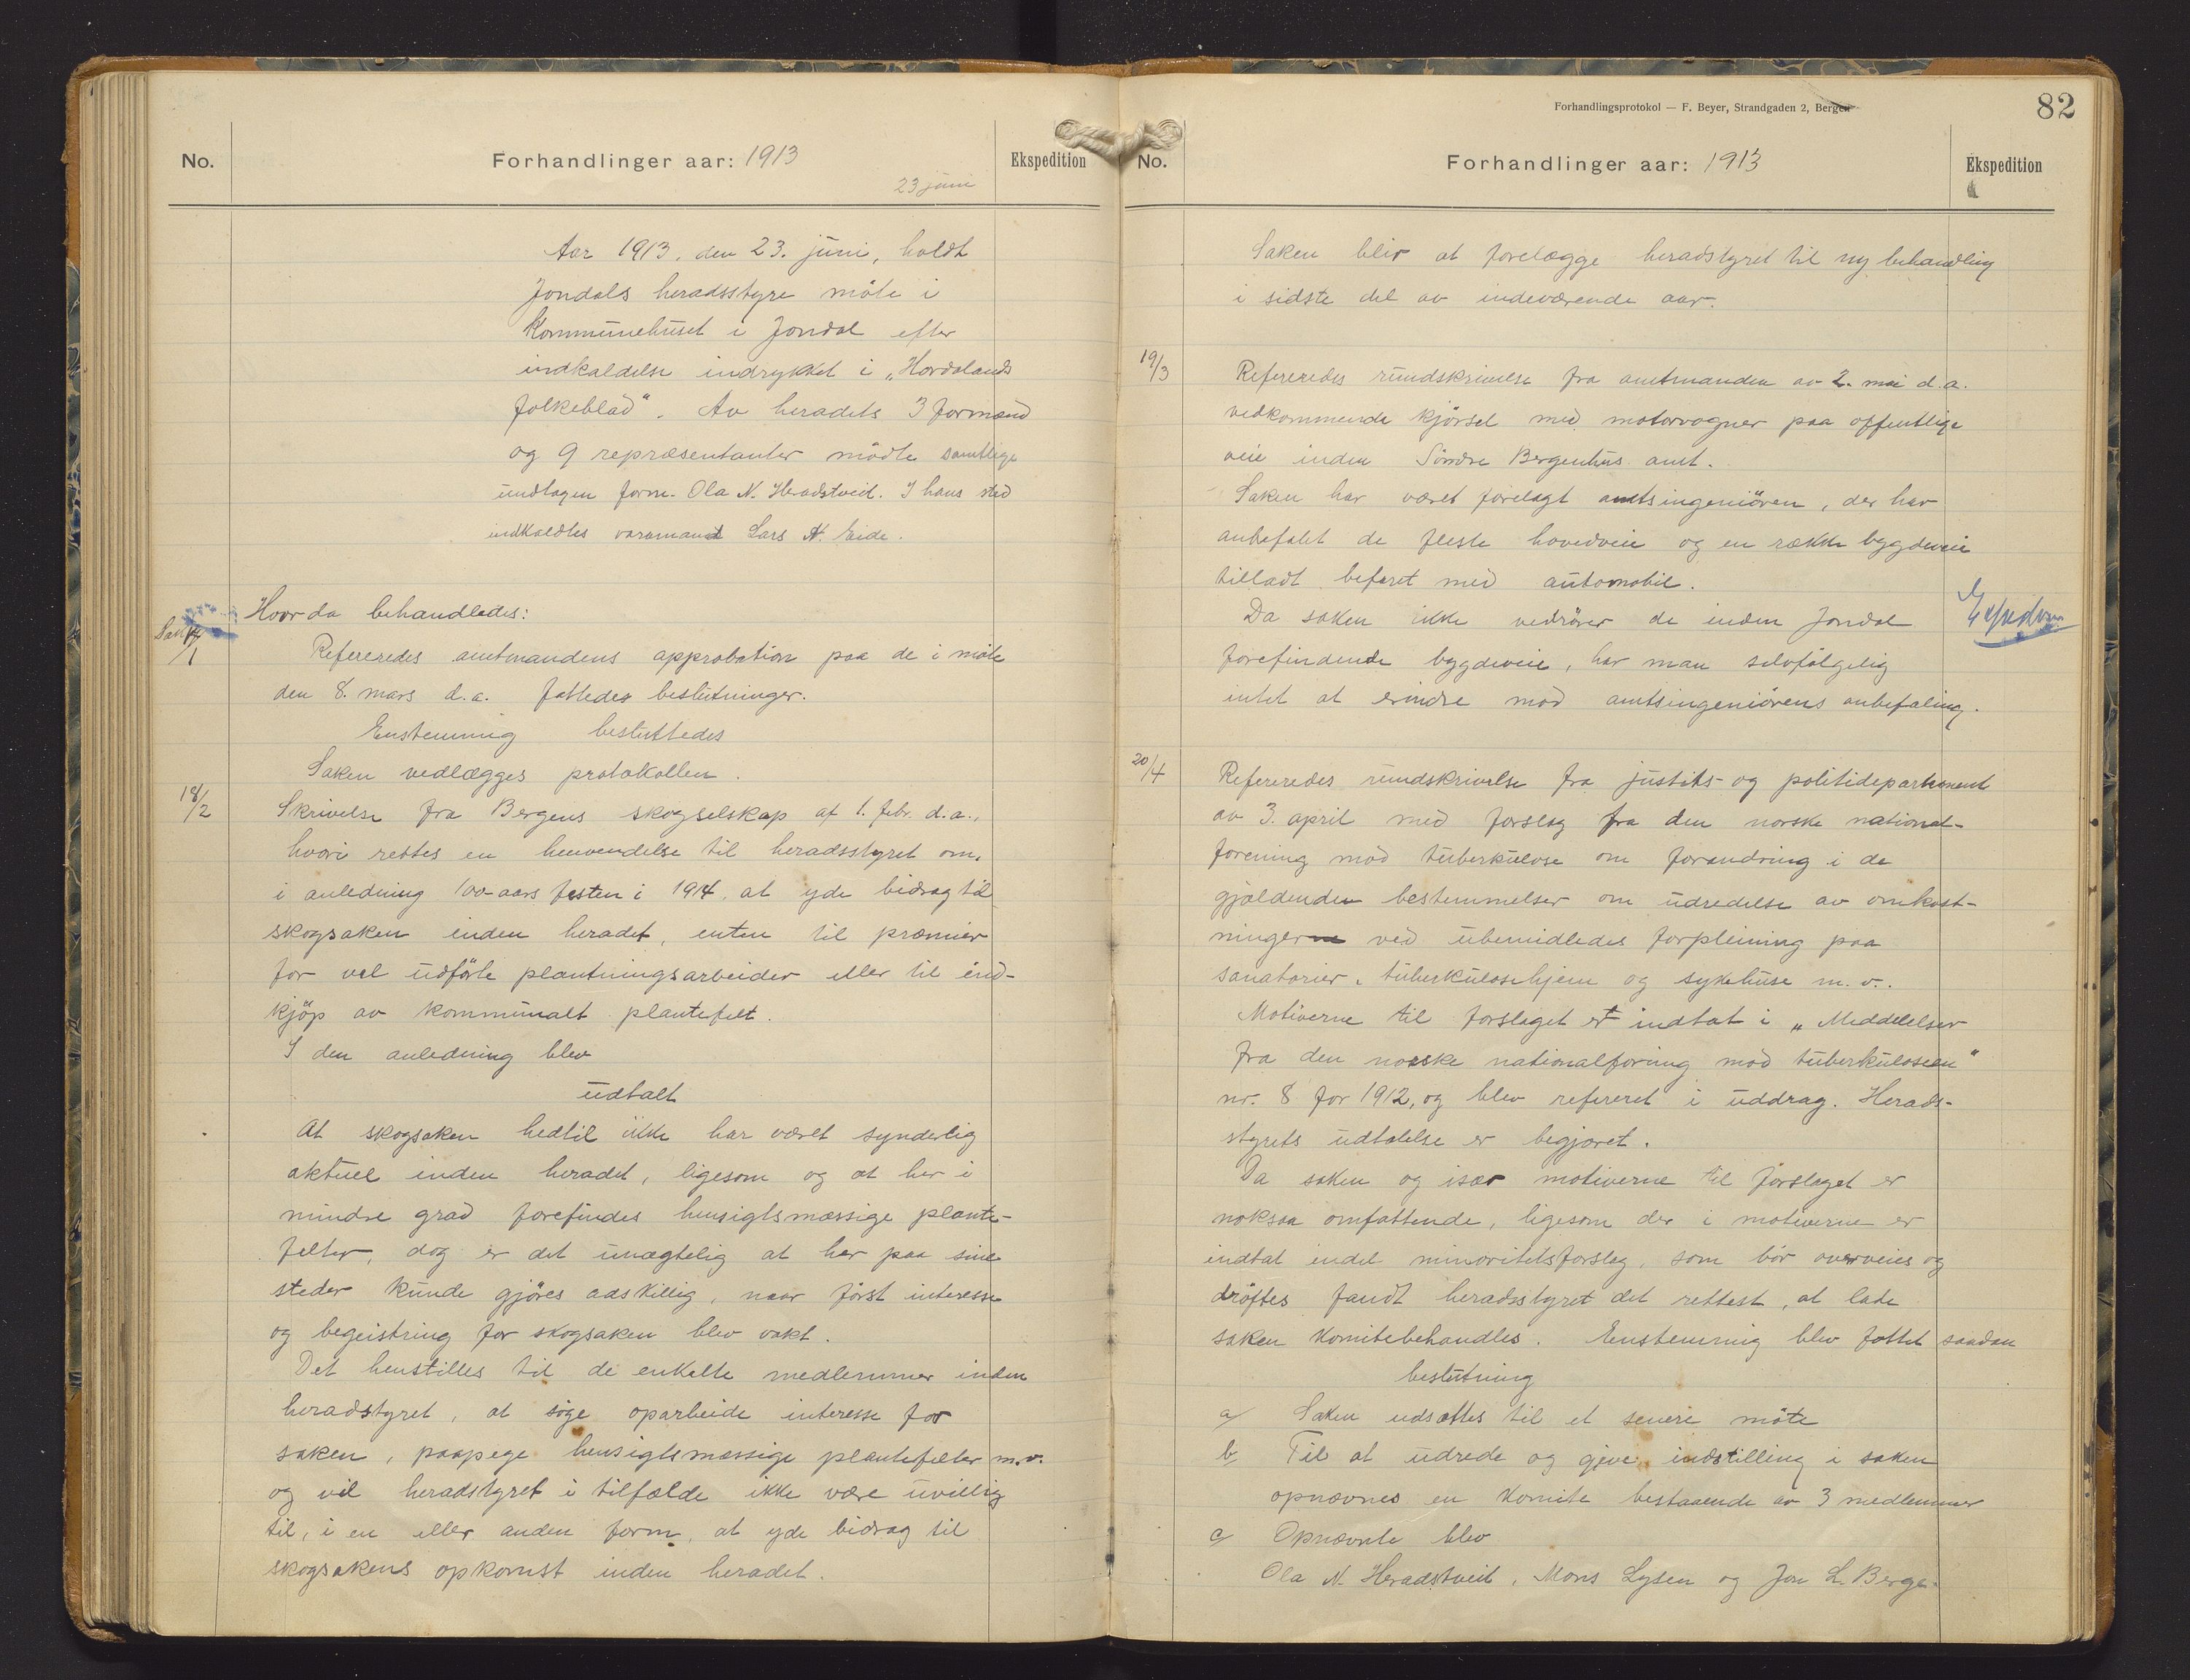 No.
Forhandlinger aar: 1913
Ekspedition
23 juni
Aar 1913, den 23. juni, holdt
Jondals heradsstyre möte i
Kommunehuset i Jondal efter
indkaldelse indrykket i „Hordalands
folkeblad“. Av heradets 3 formænd
og 9 repræsentanter mödte samtlige
undtagen form. Ola N. Heradstveit. I hans sted
indkaldtes varamand Lars N. Eide.
Hvor da behandledes:
Sak 17/1
Refereredes amtmandens approbation paa de i möte
den 8. mars d.a. fattedes beslutninger.
Enstemmig besluttedes
Saken vedlægges protokollen.
18/2
Skrivelse fra Bergens skogselskap af 1. febr. d.a.,
hvori rettes en henvendelse til heradsstyret om,
i anledning 100-aars festen i 1914, at yde bidrag til
skogsaken inden heradet, enten til præmier
for vel udförte plantningsarbeider eller til ind-
kjöp av kommunalt plantefelt.
I den anledning blev
udtalt
At skogsaken hedtil ikke har været synderlig
aktuel inden heradet, ligesom og at her i
mindre grad forefindes hensigtsmæssige plante-
felter, dog er det unægtelig at her paa sine
steder kunde gjöres adskillig, naar först interesse
og begeistring for skogsaken blev vakt.
Det henstilles til de enkelte medlemmer inden
heradstyret, at söge oparbeide interesse for
saken, paapege hensigtsmæssige plantefelter m.v.
og vil heradstyret i tilfælde ikke være uvillig
til, i en eller anden form, at yde bidrag til
skogsakens opkomst inden heradet.
Forhandlingsprotokol — F. Beyer, Strandgaden 2, Bergen
82
No.
Forhandlinger aar: 1913
Ekspedition
Saken blir at forelægge heradstyret til ny behandling
i sidste del av indeværende aar.
19/3
Refereredes rundskrivelse fra amtmanden av 2. mai d.a.
vedkommende kjörsel med motorvogner paa offentlige
veie inden Söndre Bergenhus amt.
Saken har været forelagt amtsingeniören, der har
anbefalet de fleste hovedveie og en række bygdeveie
tilladt beforet med automobil.
Da saken ikke vedrörer de inden Jondal
forefindende bygdeveie, har man selvfölgelig
intet at erindre mod amtsingeniörens anbefaling.
20/4
Refereredes rundskrivelse fra justits- og politidepartement
av 3. april med forslag fra den norske national-
forening mod tuberkulose om forandring i de
gjældenden bestemmelser om udredelse av omkost-
ninger ved ubemidledes forpleining paa
sanatorier, tuberkulosehjem og sykehuse m.v..
Motiverne til forslaget er indtat i „Meddelelser
fra den norske nationalforing mod tuberkulosen“
nr. 8 for 1912, og blev referert i uddrag. Herads-
styrets udtalelse er begjæret.
Da saken og især motiverne til forslaget er
noksaa omfattende, ligesom der i motiverne er
indtat endel minoritetsforslag, som bör overveies og
dröftes fandt heradsstyret det rettest, at lade
saken komitebehandles. Enstemmig blev fattet saadan
beslutning
a/ Saken udsættes til et senere möte
b/ Til at udrede og give indstilling i saken
opnævnes en komite bestaaende av 3 medlemmer
c/ Opnævnte blev
Ola N. Heradstveit, Mons Lysen og Jon L. Berge.